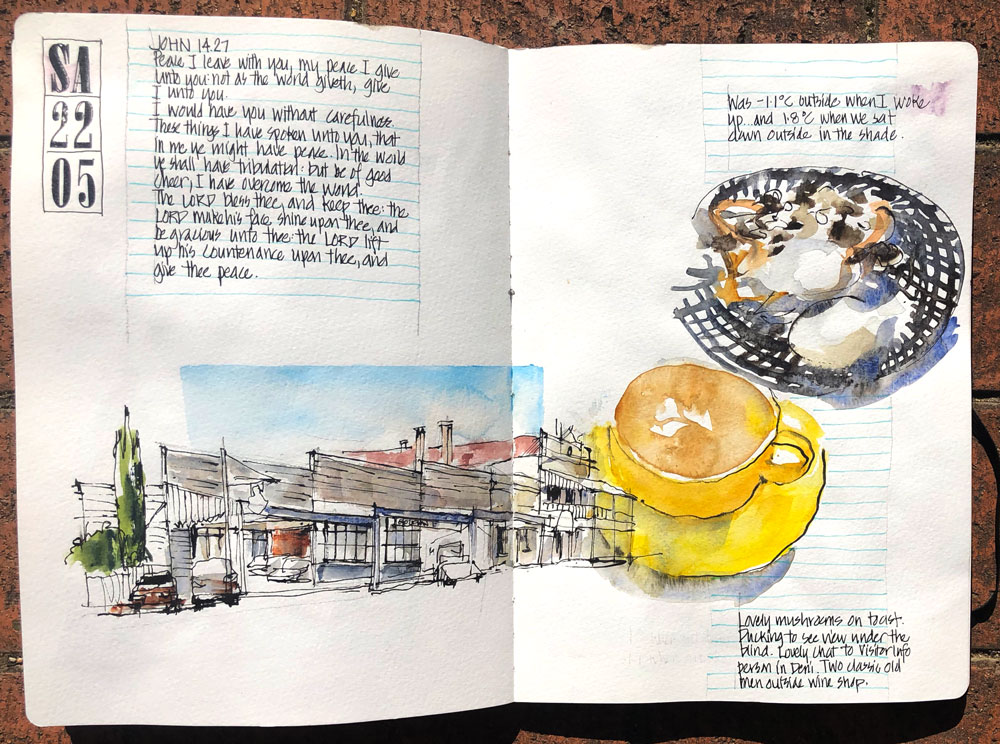 SA
22
05
JOHN 14.27
Peace I leave with you, my peace I give
unto you: not as the world giveth, give
I unto you.
I would have you without carefulness.
These things I have spoken unto you, that
in me ye might have peace. In the world
ye shall have tribulation: but be of good
cheer, I have overcome the world.
The LORD bless thee, and keep thee: the
LORD make his face shine upon thee, and
be gracious unto thee: the LORD lift
up his countenance upon thee, and
give thee peace.
Was -1.1°C outside when I woke
up...and 1.8°C when we sat
down outside in the shade.
Lovely mushrooms on toast.
Ducking to see view under the
blind. Lovely chat to Visitor Info
person in Deni. Two classic old
men outside wine shop.